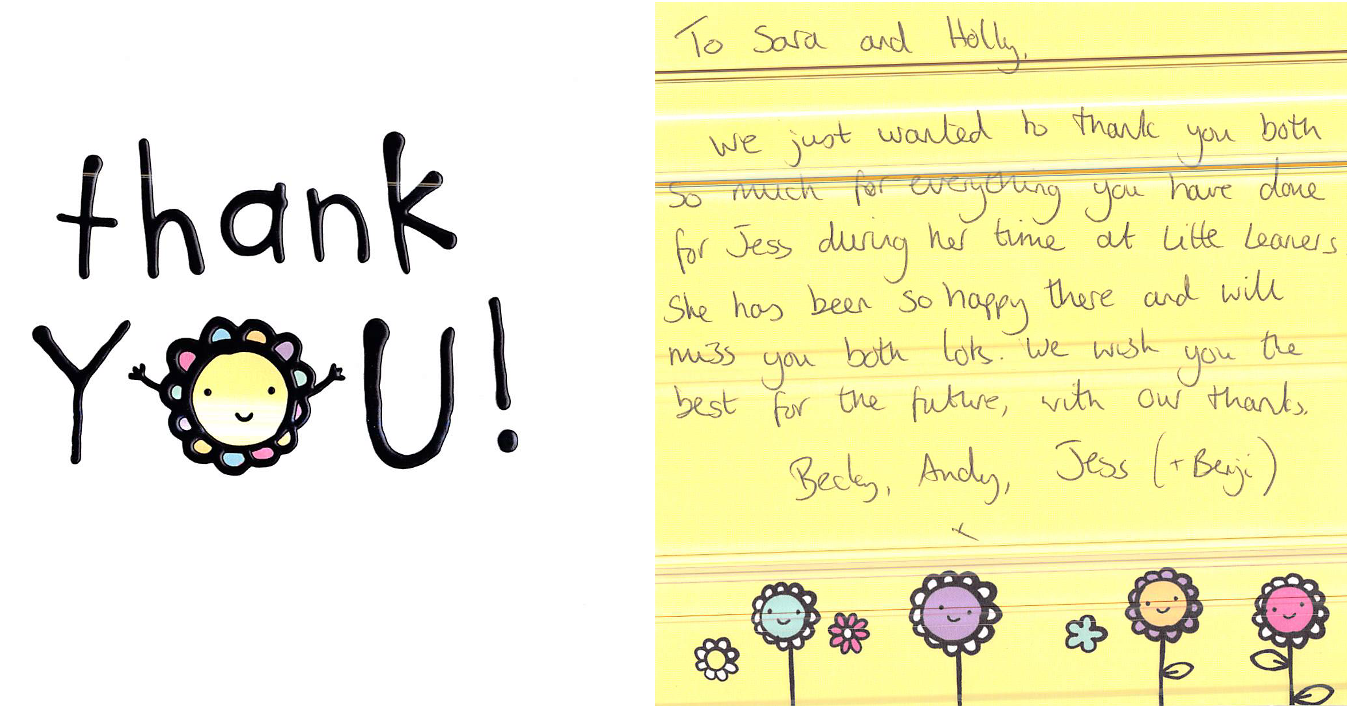 thank
YOU!
To Sara and Holly,
We just wanted to thank you both
so much for everything you have done
for Jess during her time at Little Learners.
She has been so happy there and will
miss you both lots. We wish you the
best for the future, with our thanks.
Becky, Andy, Jess (+Benji)
x